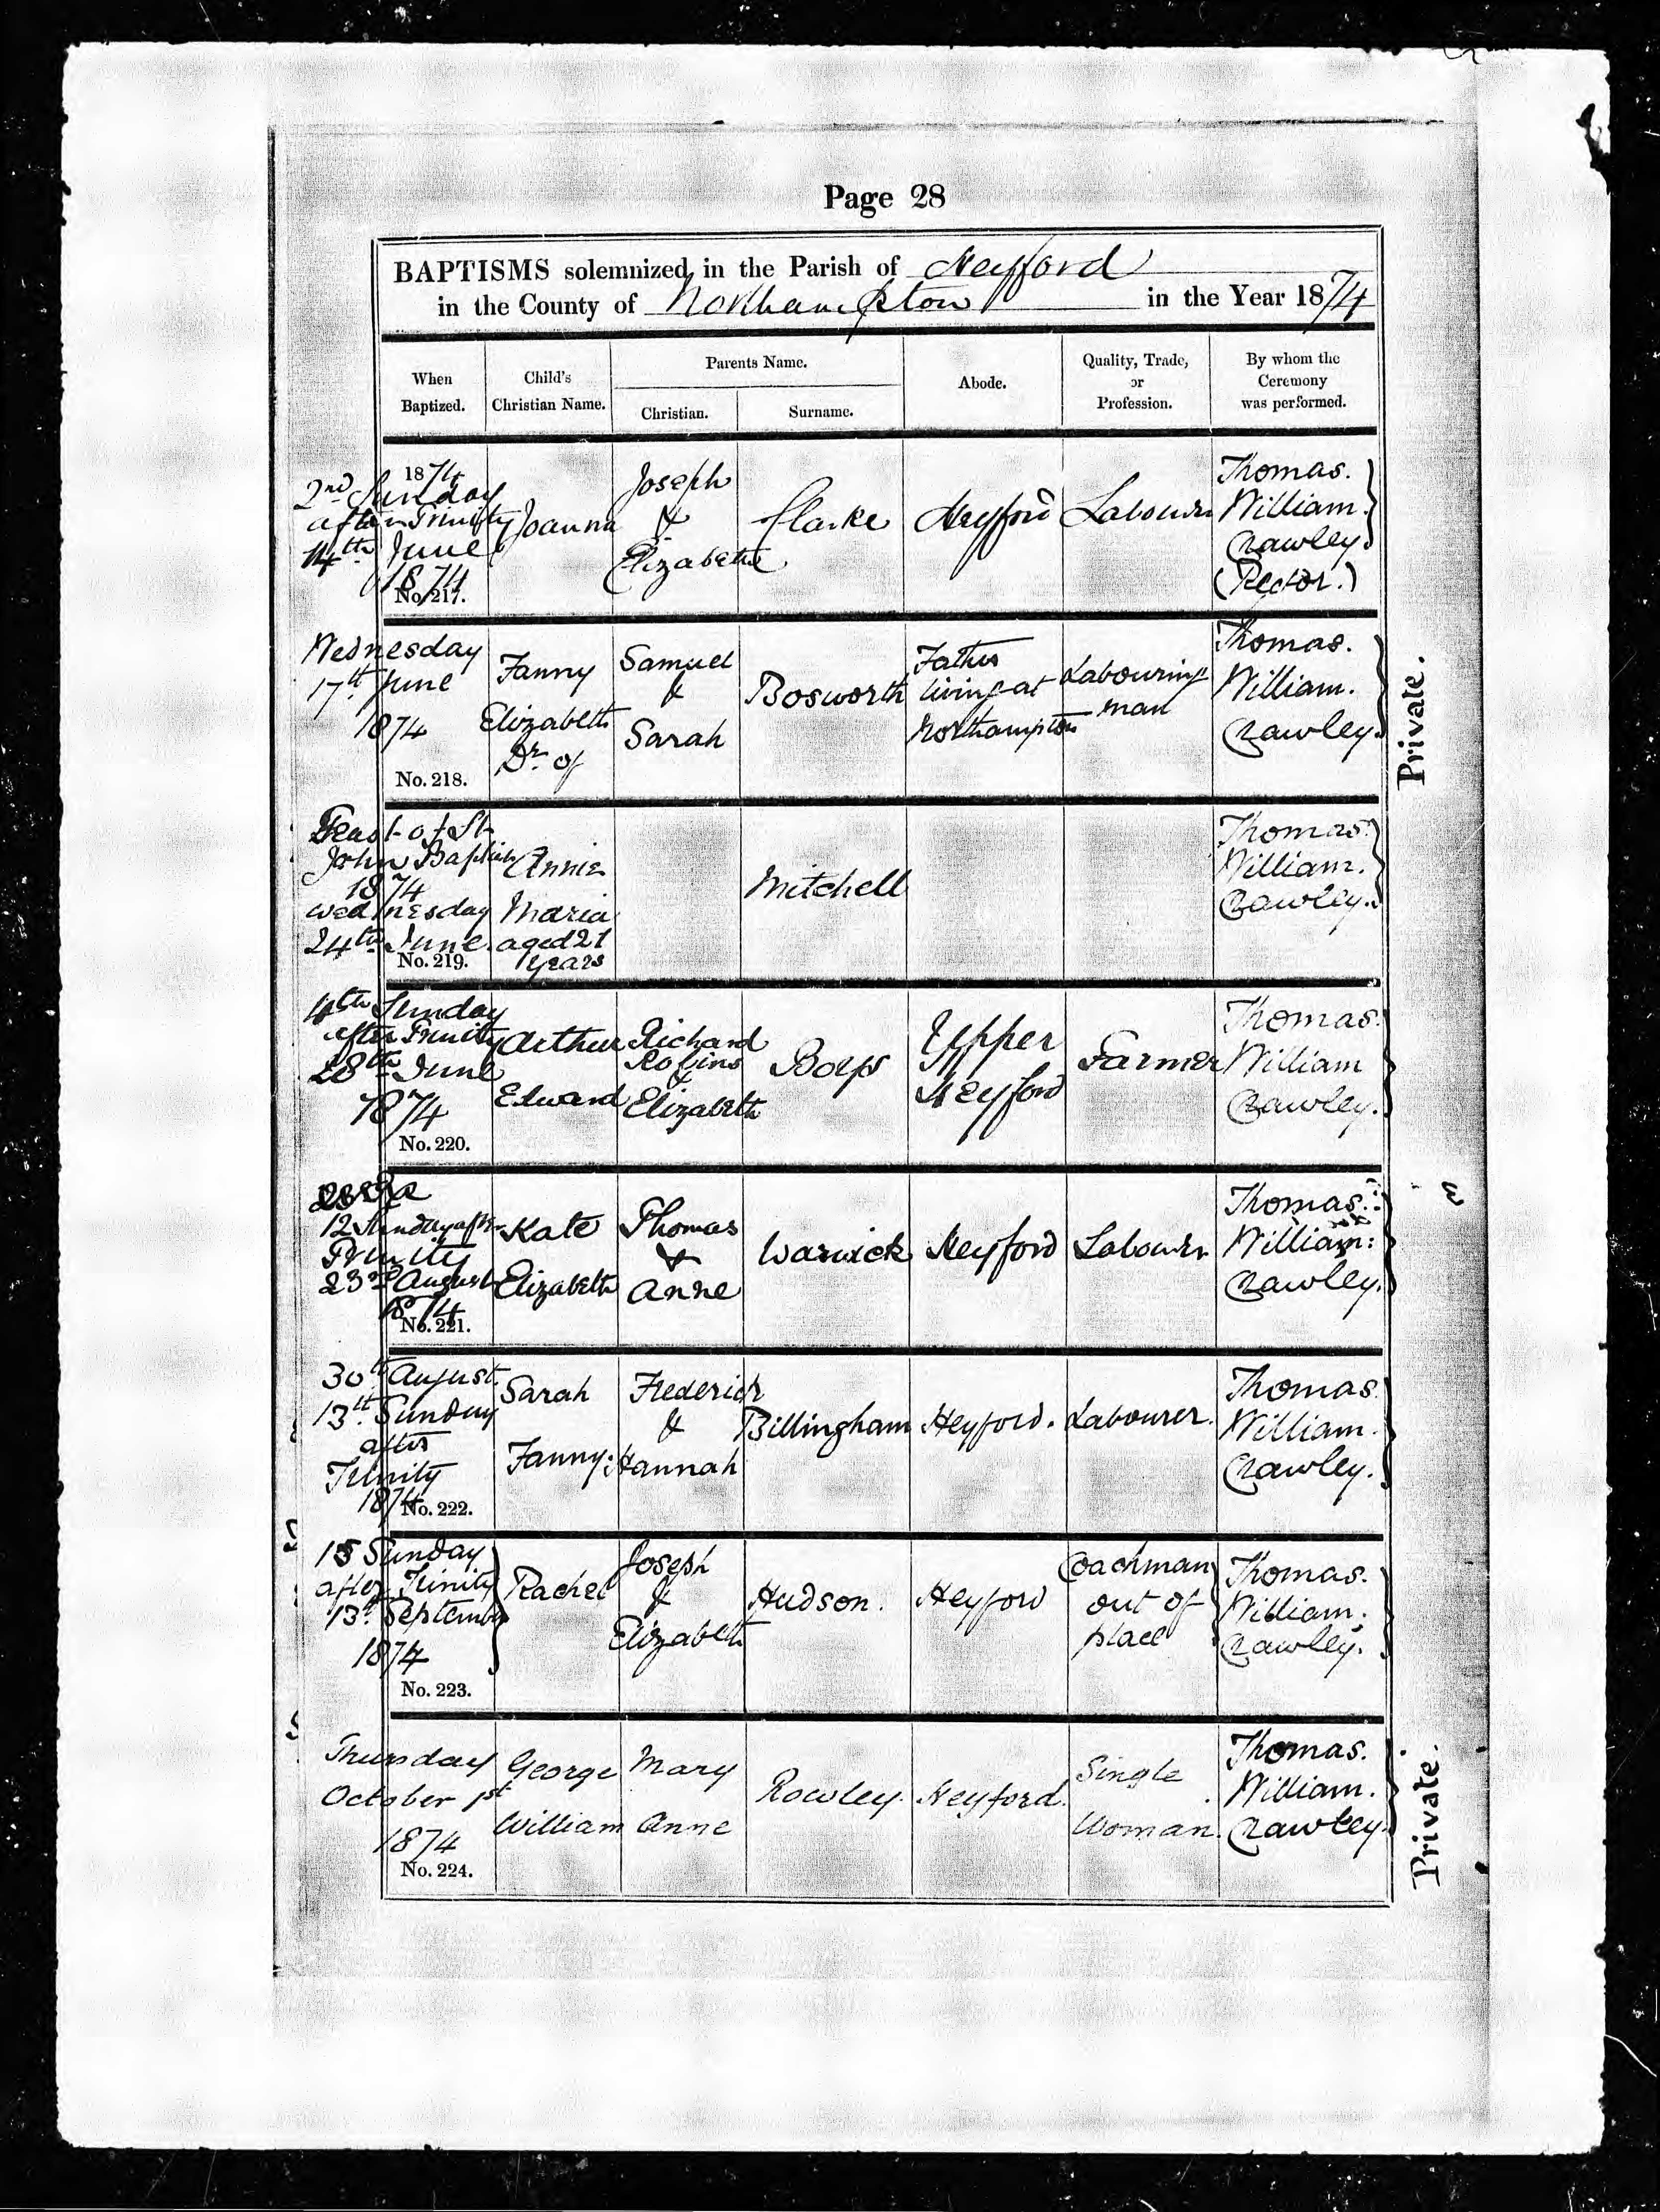 Page 28
BAPTISMS solemnized in the Parish of Heyford
in the County of Northampton in the Year 1874
When
Baptized.
Child's
Christian Name.
Parents Name.
Christian.
Surname.
Abode.
Quality, Trade,
or
Profession.
By whom the
Ceremony
was performed.
1874
2nd Sunday
after Trinity
14th June
1874
No. 217.
Joanna
Joseph
&
Elizabeth
Clarke
Heyford
Labourer
Thomas.
William.
Crawley
(Rector.)
Wednesday
17th June
1874
No. 218.
Fanny
Elizabeth
Dr. of
Samuel
&
Sarah
Bosworth
Father
living at
Northampton
Labouring
man
Thomas.
William.
Crawley.
Private.
Feast of St.
John Baptist
1874
Wednesday
24th June
No. 219.
Annie
Maria
aged 21
years
Mitchell
Thomas.
William.
Crawley.
4th Sunday
after Trinity
28th June
1874
No. 220.
Arthur
Edward
Richard
Robins
&
Elizabeth
Upper
Heyford
Farmer
Thomas.
William
Crawley.
12 Sunday after
Trinity
23rd August
1874
No. 221.
Kate
Elizabeth
Thomas
&
Anne
Warwick
Heyford
Labourer
Thomas.
William:
Crawley.
30th August.
13th Sunday
after
Trinity
1874
No. 222.
Sarah
Fanny.
Frederick
&
Hannah
Billingham
Heyford.
Labourer.
Thomas.
William.
Crawley.
15 Sunday
after Trinity
13th September
1874
No. 223.
Rachel
Joseph
&
Elizabeth
Hudson.
Heyford
Coachman
out of
place
Thomas.
William.
Crawley.
Thursday
October 1st
1874
No. 224.
George
William
Mary
Anne
Rowley.
Heyford.
Single
Woman.
Thomas.
William.
Crawley.
Private.